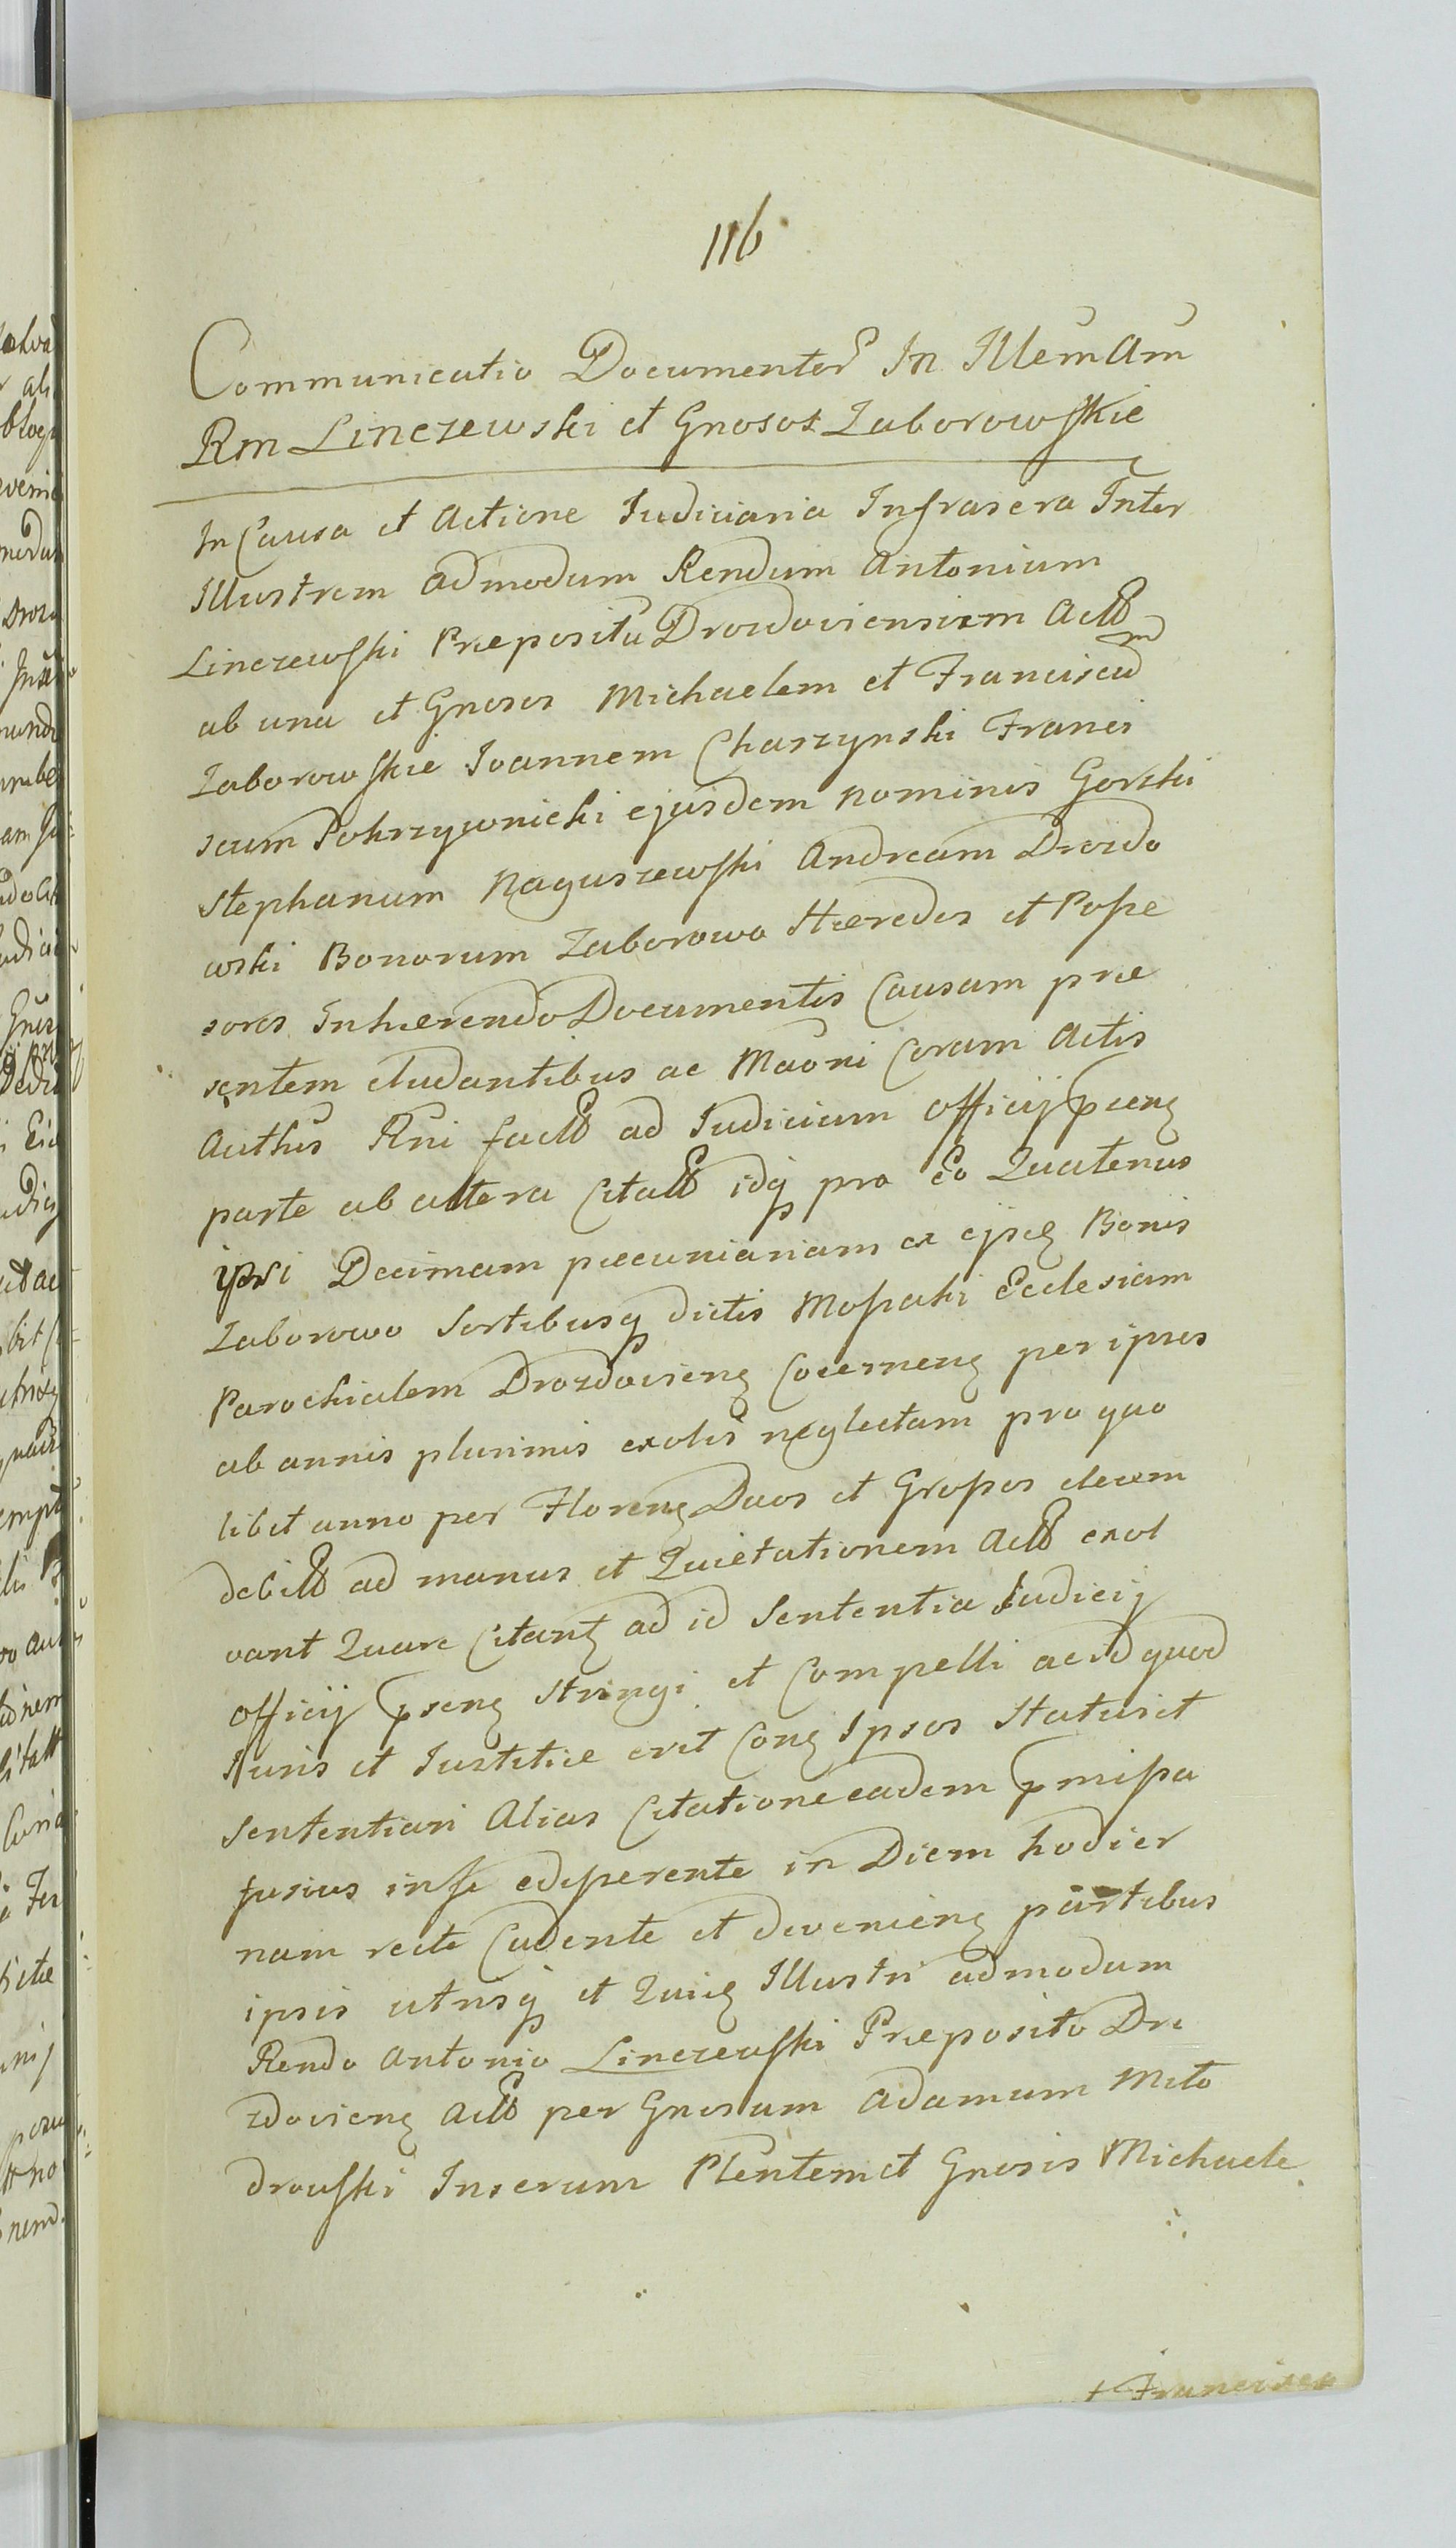 116
Communicatio Documentor In Illem Am
Rm Linczewski et Gnosos Zaborowskie
In Causa et Actione Iudiciaria Infrascra Inter
Illustrem admodum Rendum Antonium
Linczewski Præpositu Drozdoviensiem Act
ab una et Gnosos Michaelem et Franciscu
Zaborowskie Ioannem Charzynski Franci
scum Pokrzywnicki ejusdem nominis Gorski
Stephanum Naguszewski Andream Drozdo
wski Bonorum Zaborowo Hæredes et Posse
sores Inhærendo Documentis Causam præ
sentem eludantibus ac Maoni Coram Actis
Authis Rni fact ad Iudicium Officij pseng
parte ab altera Citatt idq pro eo Quatenus
ipsi Decimam pecuniariam ex ejsq Bonis
Zaborowo Sortibusq dictis Mossaki Ecclesiam
Parochialem Drozdovieng Cocerneng per ipsos
ab annis plurimis exolis neglectam pro quo
libet anno per Floreng Duos et Grossos decem
debitt ad manus et Quietationem Act exol
vant Quare Citant ad id Sententia Iudicij
Officij pseng Stringi et Compelli ac id quod
Iuris et Iustitiæ erit Cong Ipsos Statui et
Sententiari Alias Citatione eadem pmissa
fusius in se edisserente in Diem hodier
nam recte Cadente et devenieng partibus
ipsis utrisq et Quiq Illustri admodum
Rendo Antonio Linczewski Præposito Dro
zdovieng Act per Gnosum Adamum Mito
drowski Inserum Plentem et Gnosis Michaele
+ Francisco